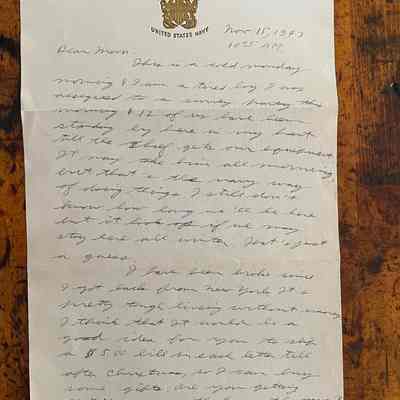 UNITED STATES NAVY
Nov 15, 1943
1025 AM.
Dear Mom.
This is a cold monday
morning & I am a tired boy I was
assigned to a survey party this
morning & 12 of us have been
standing by here in my hut
till the Chief gets our equipment
It may the him all morning,
but that is the navy way
of doing things I still don't
know how long we'll be here
but it looks if we may
stay here all winter. That's just
a guess.
I have been broke since
I got back from New York It's
pretty tough living without money
I think that It would be a
good idea for you to slip
a $5.00 bill in each letter till
after Christmas, so I can buy
some gifts. Are you getting